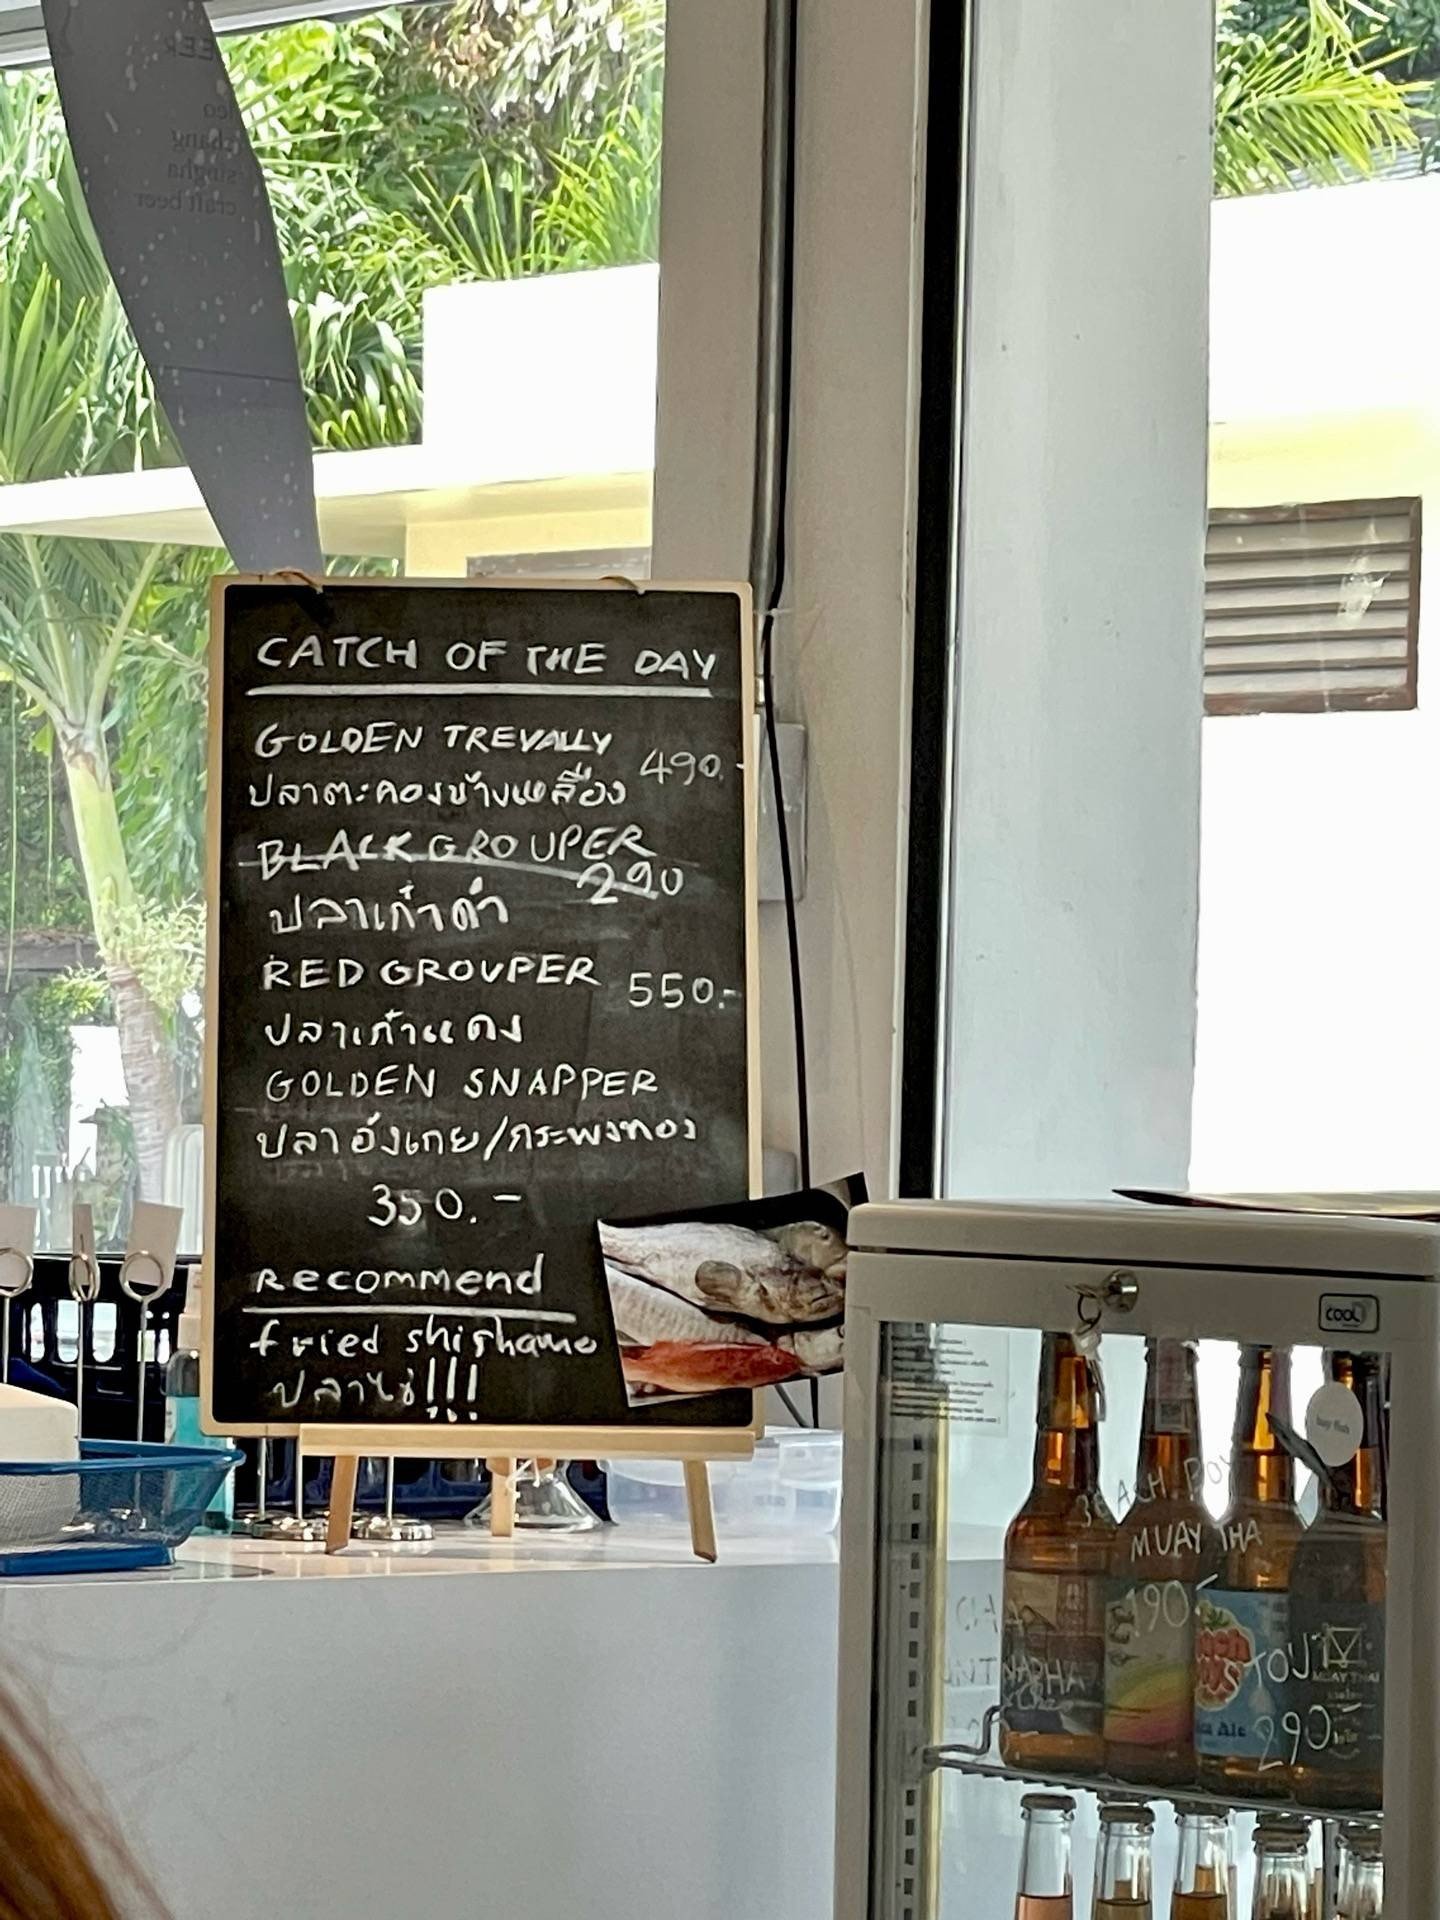 chang
singha
craft beer
CATCH OF THE DAY
GOLDEN TREVALLY
490.-
ปลาตะคองข้างเหลือง
BLACK GROUPER
290
ปลาเก๋าดำ
RED GROUPER
550.-
ปลาเก๋าแดง
GOLDEN SNAPPER
ปลาอังเกย/กระพงทอง
350.-
Recommend
fried shishamo
ปลาไข่!!!
COOL
MUAY THA
190.-
290.-